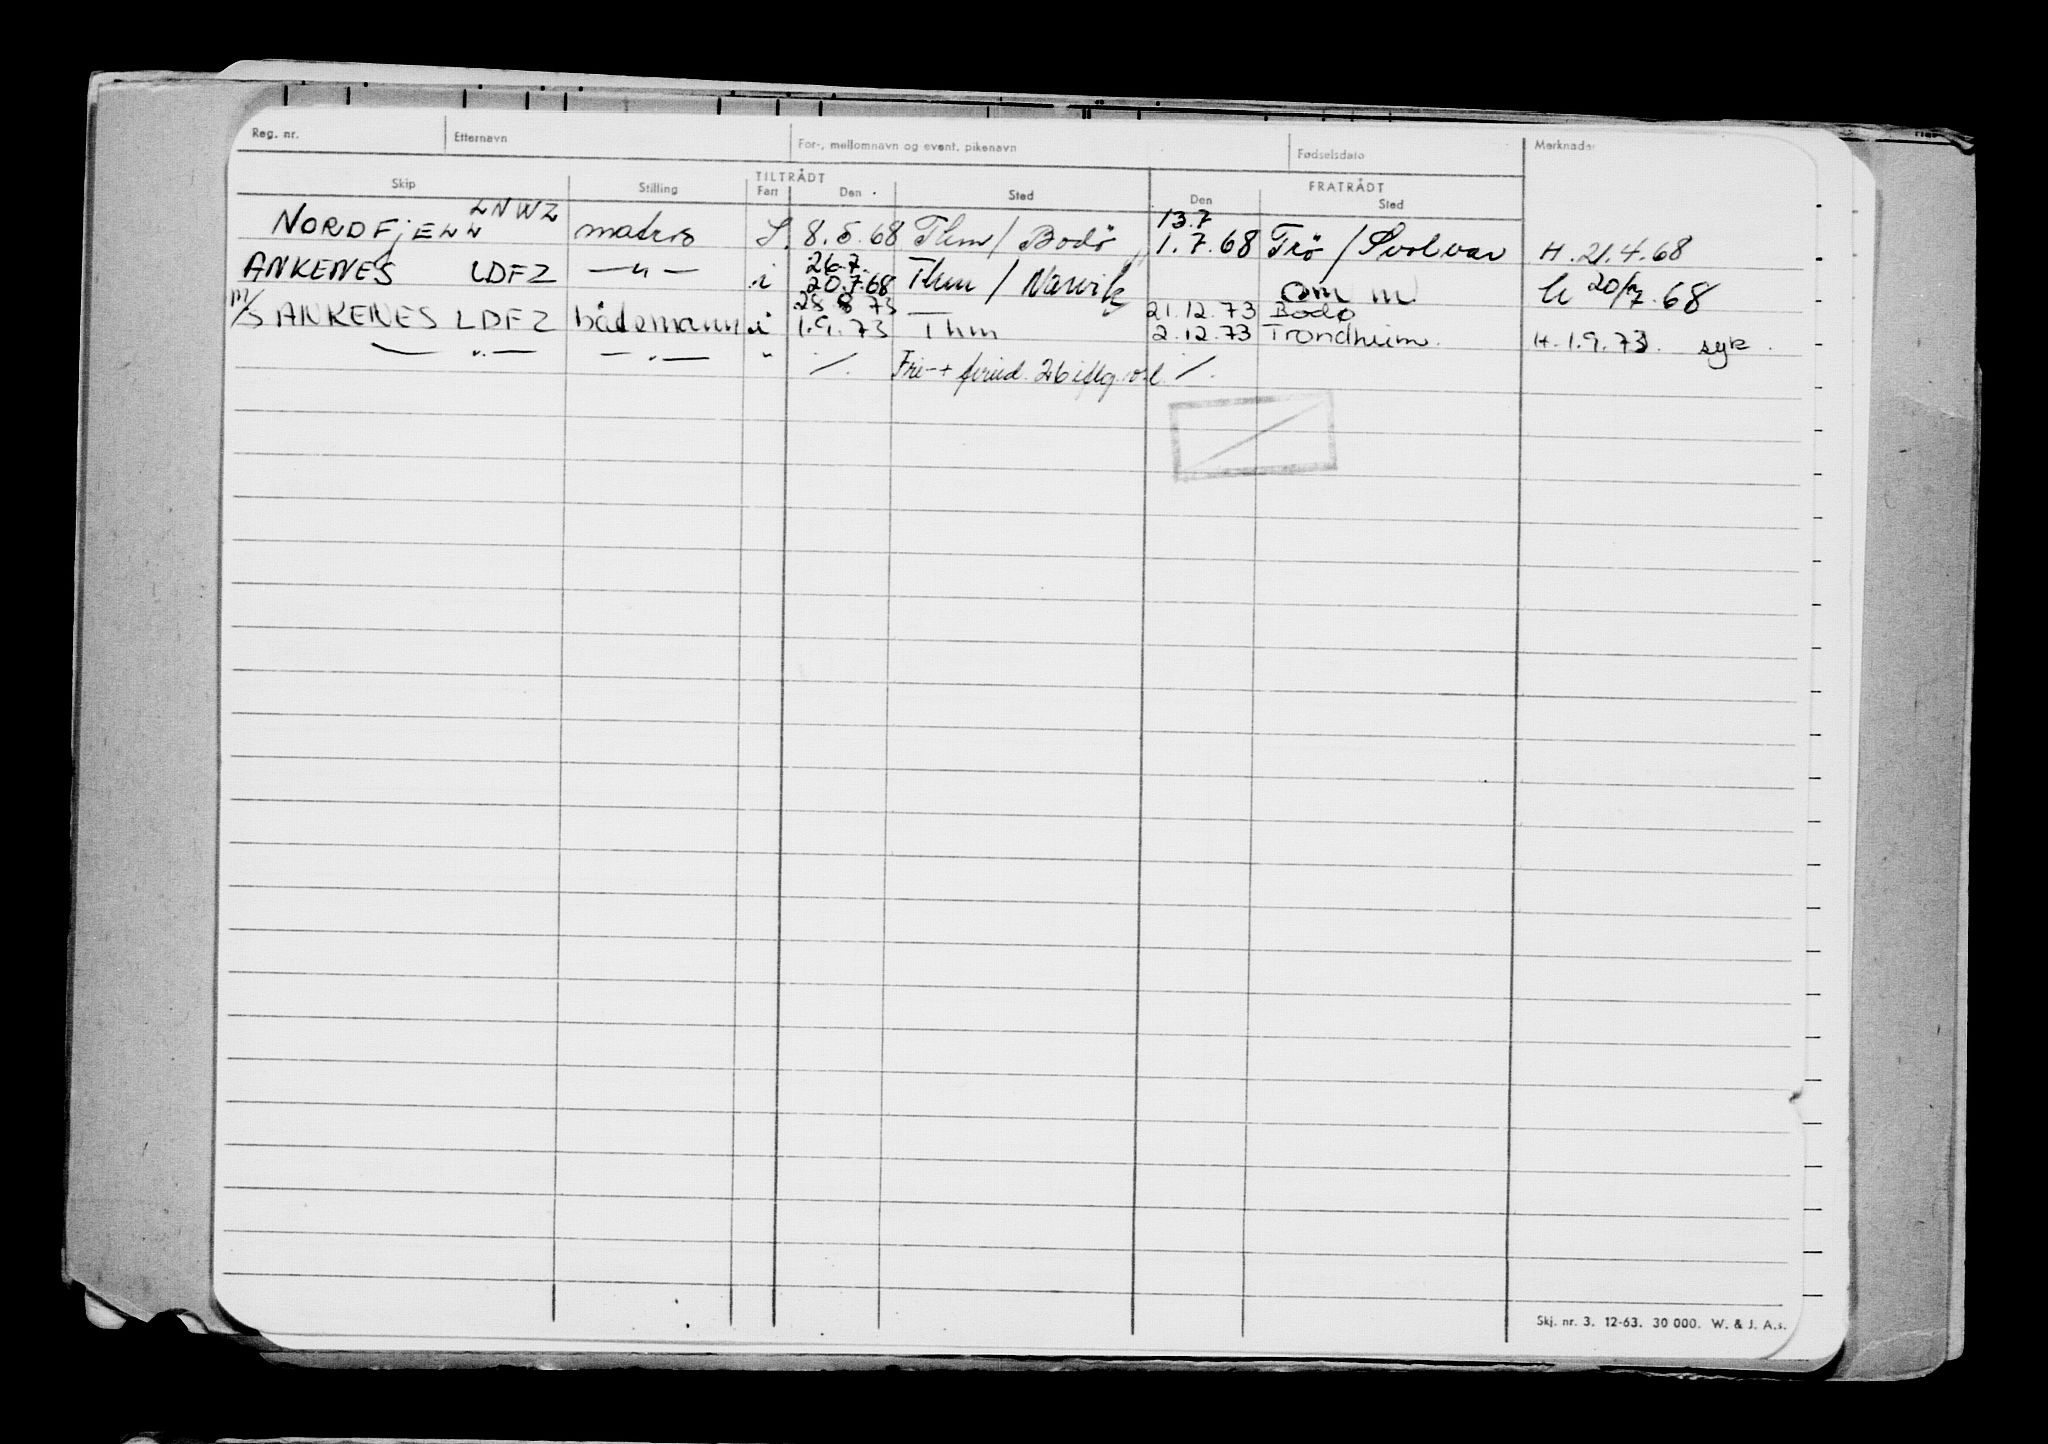 Reg. nr. Etternavn For-, mellomnavn og event. pikenavn Fødselsdato Merknader
TILTRÅDT FRATRÅDT
Skip Stilling Fart Den Sted Den Sted
LNWZ 13.7
NORDFJELL matros S. 8.5.68 Thm/Bodö 1.7.68 Trö/Svolvær H. 21.4.68
26.7.
ANKENES LDFZ —"— i 20.7.68 Thm/Narvik om m 20/7.68
28 8 73 21.12.73 Bodø
M/S ANKENES LDFZ båtsmann i 1.9.73 Thm 2.12.73 Trondheim. H.1.9.73. syk.
—"— —"— " /. Fri-+ 26 /.
Skj. nr. 3. 12-63. 30 000. W. & J. A.s.